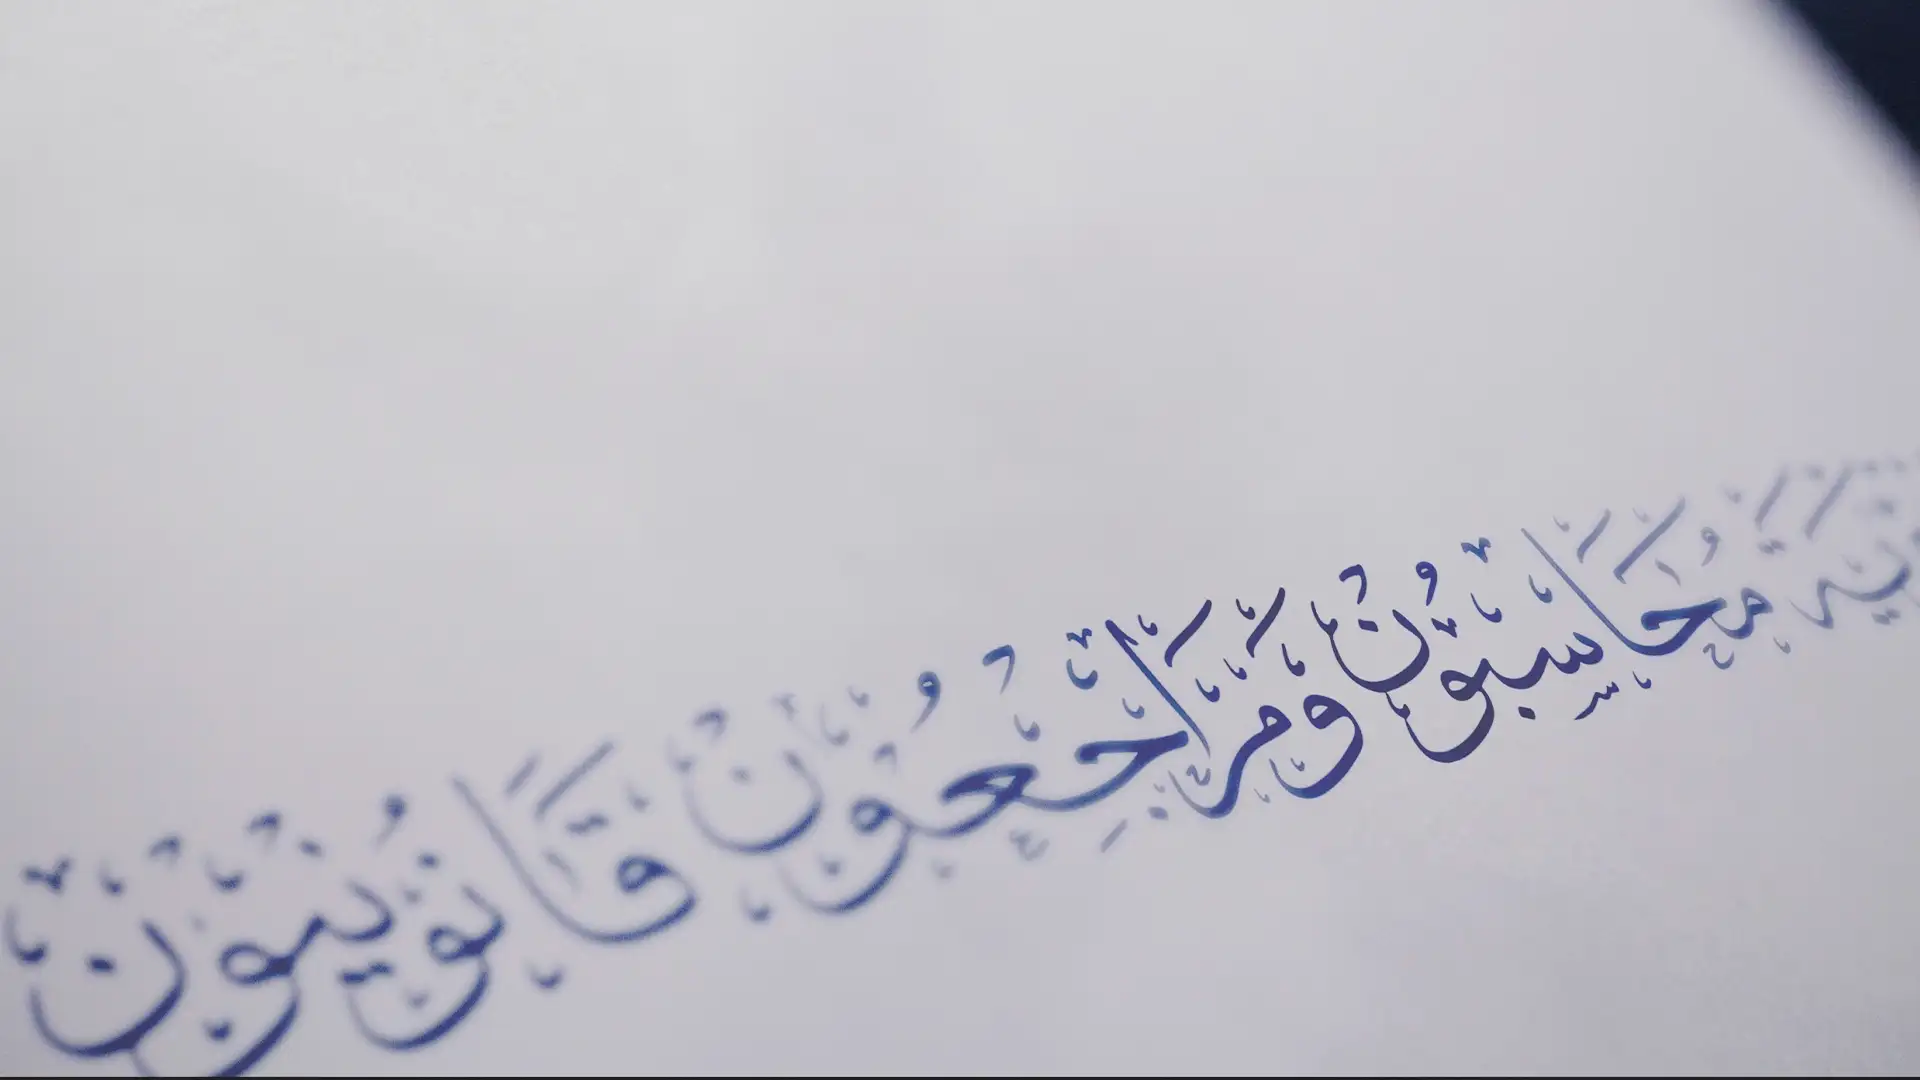 محاسبون ومراجعون قانونيون